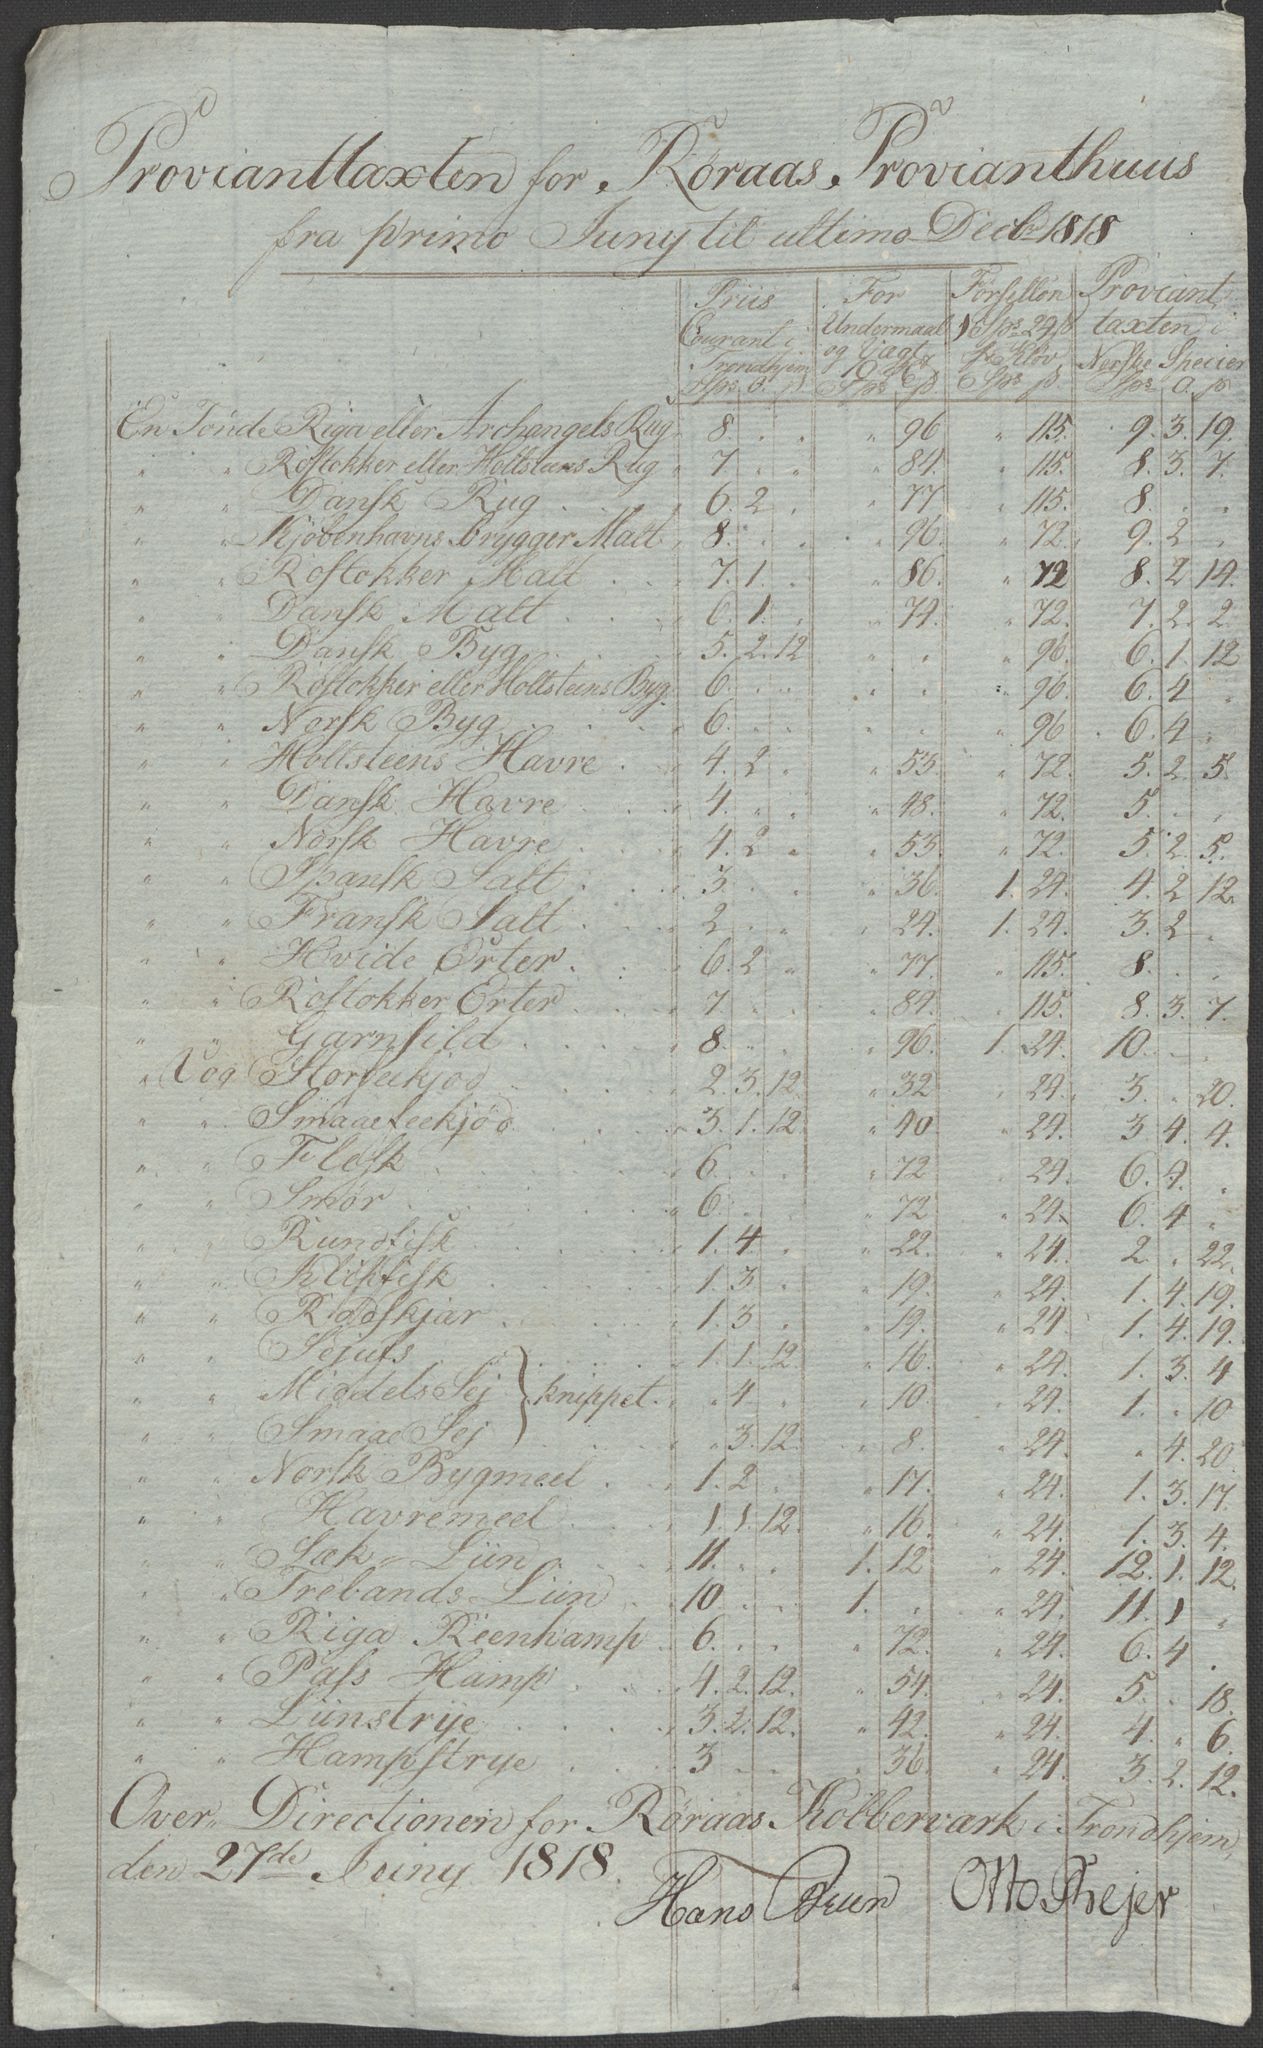 Provianttaxten for Röraas Provianthuus
fra primo Juny til ultimo Decbr 1818
Priis Courant i Trondhjem Sps. O. ß | For Undermaal og Vægt Sps ß | Førsellön Sps 24 ß Kløv Sps ß | Proviant taxten i Norske Specier Sps O. ß
En Tönde Riga eller Archangels Rug 8. . . " 96 " 115. 9. 3. 19.
" " Rostokker eller Holtsteens Rug 7 . . " 84. " 115. 8. 3. 7.
" " Dansk Rug 6. 2 . " 77 " 115. 8. . .
" " Kjöbenhavns brygger Malt 8. . . " 96. " 72. 9. 2 .
" " Rostokker Malt 7. 1. . " 86. " 72 8. 2 14.
" " Dansk Malt 6. 1. . " 74. " 72. 7. 2. 2.
" " Dansk Byg 5. 2. 12 " . " 96. 6. 1. 12
" " Rostokker eller Holtsteens Byg. 6. . . . " 96. 6. 4 .
" " Norsk Byg 6. . . . " 96 6. 4 .
" " Holtsteens Havre 4. 2 . " 53. " 72. 5. 2 5.
" " Dansk Havre 4. . . " 48. " 72. 5. . .
" " Norsk Havre 4. 2 . " 53. " 72. 5. 2. 5.
" " Spansk Salt 3 . . " 36. 1. 24. 4. 2 12.
" " Fransk Salt 2 . . " 24. 1. 24. 3. 2 .
" " Hvide Erter 6. 2 " " 77. " 115. 8. . .
" " Rostokker Erter 7 . . " 84. " 115. 8. 3. 7.
" " Garnsild 8. . . " 96. 1. 24. 10. . .
" Vog Storfeekjöd 2. 3. 12. " 32 " 24. 3. . 20.
" " Smaaefeekjöd 3. 1. 12. " 40 " 24. 3 4. 4.
" " Flesk 6. . . " 72 24. 6. 4. .
" " Smör 6. . . " 72 " 24. 6. 4 .
" " Rundfisk 1. 4 . " 22. " 24. 2. " 22.
" " Klipfisk 1. 3 . " 19. " 24. 1. 4. 19.
" " Rødskjær 1. 3 . " 19. " 24 1. 4. 19
" " Sejufs 1. 1. 12. " 16. " 24. 1. 3. 4
" " Middels Sej } knippet. " 4 " " 10. " 24. 1. " 10
" " Smaae Sej " 3. 12. " 8. " 24. " 4. 20.
" " Norsk Bygmeel 1. 2 . " 17. " 24. 1. 3. 17.
" " Havremeel 1. 1. 12. " 16. " 24. 1. 3. 4.
" " Sæk Liin 11. . . 1. 12 " 24 12. 1. 12.
" " Trebands Liin 10 . . 1. . " 24. 11. 1 "
" " Riga Reenhamp 6. . . " 72. " 24. 6. 4 .
" " Pass Hamp 4. 2. 12. " 54. " 24. 5. . 18.
" " Liinstrÿe 3. 2. 12. " 42. " 24. 4. " 6.
" " Hampstrÿe 3 . . " 36. " 24. 3. 2. 12.
Over Directionen for Röraas Kobberværk i Trondhjem,
den 27de Juny 1818.
Hans Otto